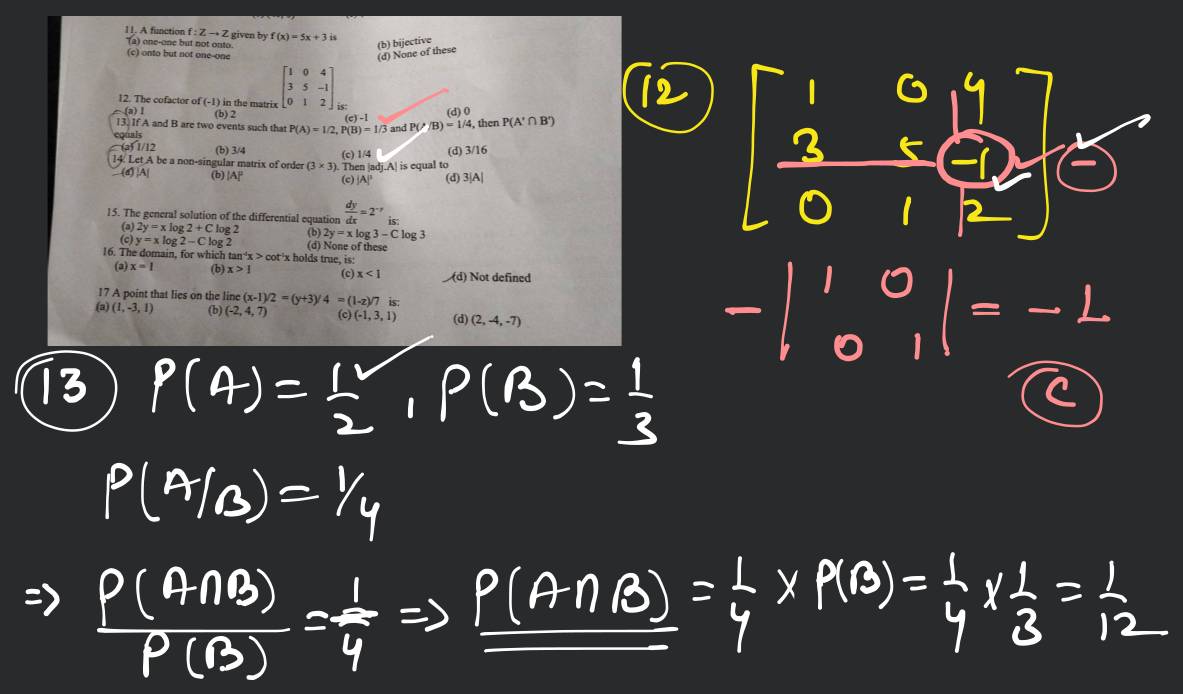 11. A function f : Z → Z given by f (x) = 5x + 3 is
(a) one-one but not onto.
(b) bijective
(c) onto but not one-one
(d) None of these
1 0 4
3 5 -1
12. The cofactor of (-1) in the matrix 0 1 2 is:
(a) 1 (b) 2 (c) -1 (d) 0
13. If A and B are two events such that P(A) = 1/2, P(B) = 1/3 and P(A/B) = 1/4, then P(A' ∩ B')
equals
(a) 1/12 (b) 3/4 (c) 1/4 (d) 3/16
14. Let A be a non-singular matrix of order (3 × 3). Then |adj.A| is equal to
(a) |A| (b) |A|² (c) |A|³ (d) 3|A|
15. The general solution of the differential equation dy/dx = 2^-y is:
(a) 2y = x log 2 + C log 2 (b) 2y = x log 3 – C log 3
(c) y = x log 2 – C log 2 (d) None of these
16. The domain, for which tan⁻¹x > cot⁻¹x holds true, is:
(a) x = 1 (b) x > 1 (c) x < 1 (d) Not defined
17 A point that lies on the line (x-1)/2 = (y+3)/ 4 = (1-z)/7 is:
(a) (1, -3, 1) (b) (-2, 4, 7) (c) (-1, 3, 1) (d) (2, -4, -7)
12
1 0 4
3 5 -1 -
0 1 2
- | 1 0 | = - 1
0 1
C
13 P(A) = 1/2 , P(B) = 1/3
P(A/B) = 1/4
=> P(A∩B)/P(B) = 1/4 => P(A∩B) = 1/4 × P(B) = 1/4 × 1/3 = 1/12